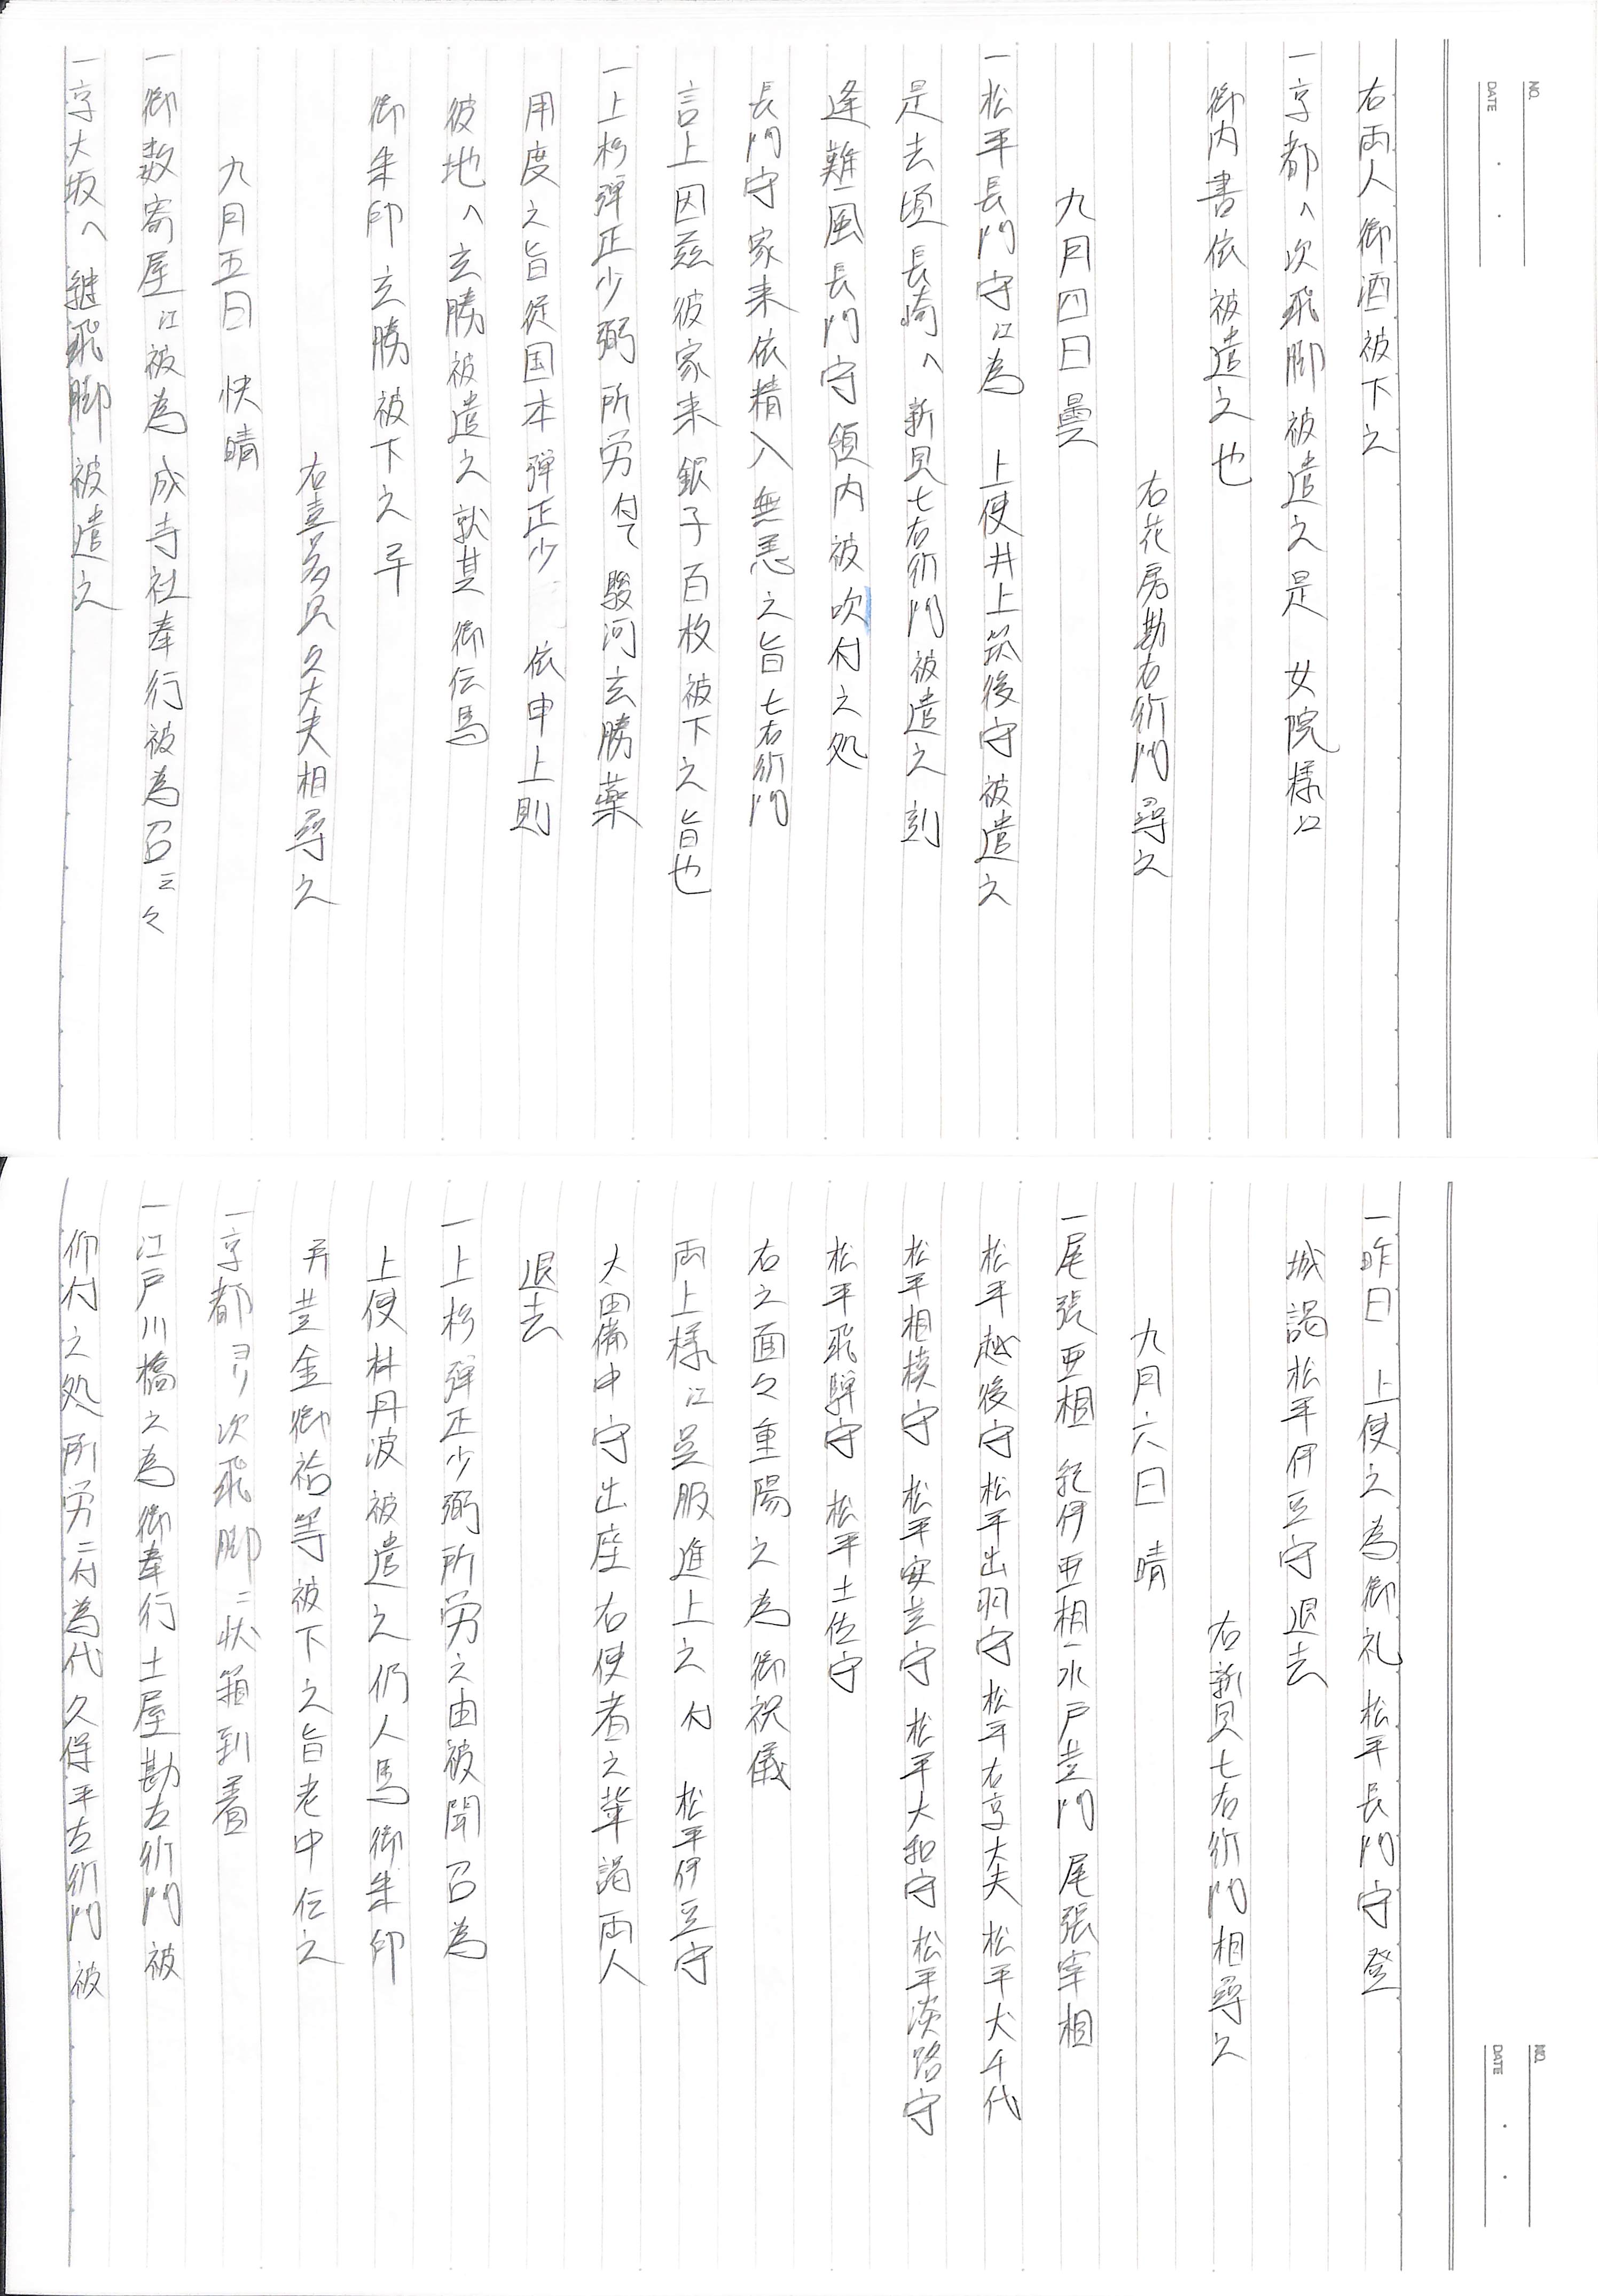 NO.
DATE
右両人御酒被下之
一京都へ次飛脚被遣之是 女院様江
御内書依被遣之也
右花房勘右衛門尋之
九月四日 曇
一松平長門守江為 上使井上筑後守被遣之
是去頃長崎へ 新見七右衛門被遣之刻
逢難風長門守領内被吹付之処
長門守家来依精入無恙之旨七右衛門
言上因茲彼家来銀子百枚被下之旨也
一上杉弾正少弼所労付て 駿河玄勝薬
用度之旨従国本弾正少 依申上則
彼地へ玄勝被遣之就其御伝馬
御朱印玄勝被下之
右喜多見久大夫相尋之
九月五日 快晴
一御数寄屋江被為 成寺社奉行被為召云々
一京大坂へ 継飛脚被遣之
NO.
DATE
一昨日 上使之為御礼 松平長門守登
城謁松平伊豆守退去
右新見七右衛門相尋之
九月六日 晴
一尾張亜相 紀伊亜相 水戸黄門 尾張宰相
松平越後守 松平出羽守 松平右京大夫 松平犬千代
松平相模守 松平安芸守 松平大和守 松平淡路守
松平飛騨守 松平土佐守
右之面々重陽之為御祝儀
両上様江呉服進上之付 松平伊豆守
太田備中守出座右使者之輩謁両人
退去
一上杉弾正少弼所労之由被聞召為
上使林丹波被遣之仍人馬御朱印
并黄金御袷等被下之旨老中伝之
一京都ヨリ次飛脚ニ状箱到着
一江戸川橋之為御奉行土屋勘左衛門被
仰付之処所労ニ付為代久保平左衛門被